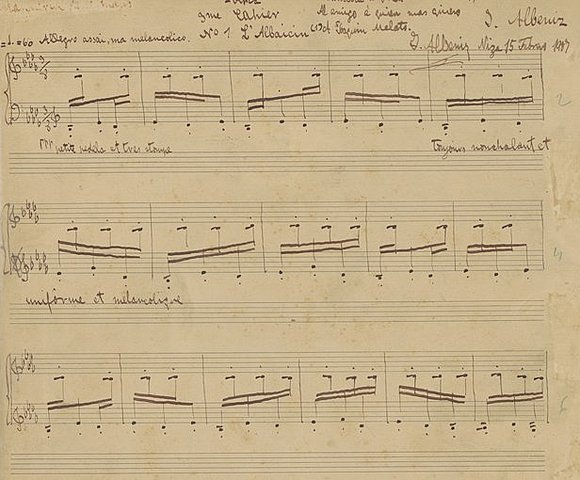 3me Cahier
Al amigo á quien mas quiero
I. Albeniz
Nº 1 L'Albaicin
Joaquin Malats.
=60 Allegro assai, ma melancolico.
I. Albeniz Niza 15 1907
2
petite pédale et tres
toujours nonchalant et
4
uniforme et mélancolique
6